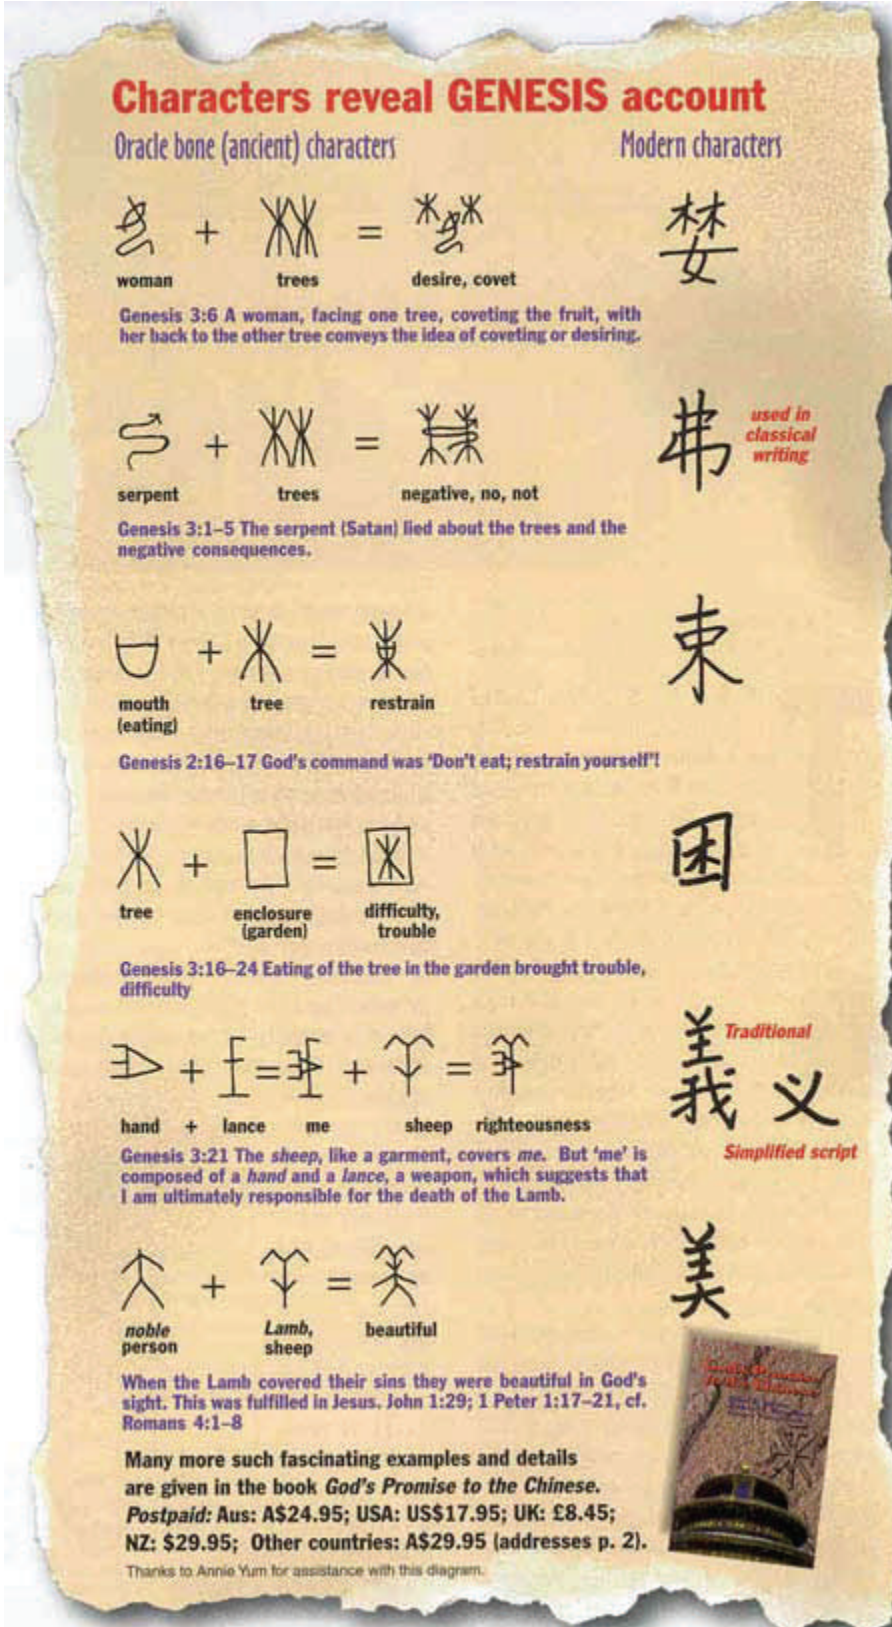 Characters reveal GENESIS account
Oracle bone (ancient) characters Modern characters
+ =
woman trees desire, covet
婪
Genesis 3:6 A woman, facing one tree, coveting the fruit, with
her back to the other tree conveys the idea of coveting or desiring.
+ =
serpent trees negative, no, not
弗
used in
classical
writing
Genesis 3:1–5 The serpent (Satan) lied about the trees and the
negative consequences.
+ =
mouth tree restrain
(eating)
束
Genesis 2:16–17 God's command was ‘Don't eat; restrain yourself’!
+ =
tree enclosure difficulty,
(garden) trouble
困
Genesis 3:16–24 Eating of the tree in the garden brought trouble,
difficulty
+ = + =
hand + lance me sheep righteousness
義 Traditional
义
Simplified script
Genesis 3:21 The sheep, like a garment, covers me. But ‘me’ is
composed of a hand and a lance, a weapon, which suggests that
I am ultimately responsible for the death of the Lamb.
+ =
noble Lamb, beautiful
person sheep
美
When the Lamb covered their sins they were beautiful in God's
sight. This was fulfilled in Jesus. John 1:29; 1 Peter 1:17–21, cf.
Romans 4:1–8
Many more such fascinating examples and details
are given in the book God's Promise to the Chinese.
Postpaid: Aus: A$24.95; USA: US$17.95; UK: £8.45;
NZ: $29.95; Other countries: A$29.95 (addresses p. 2).
Thanks to Annie Yum for assistance with this diagram.